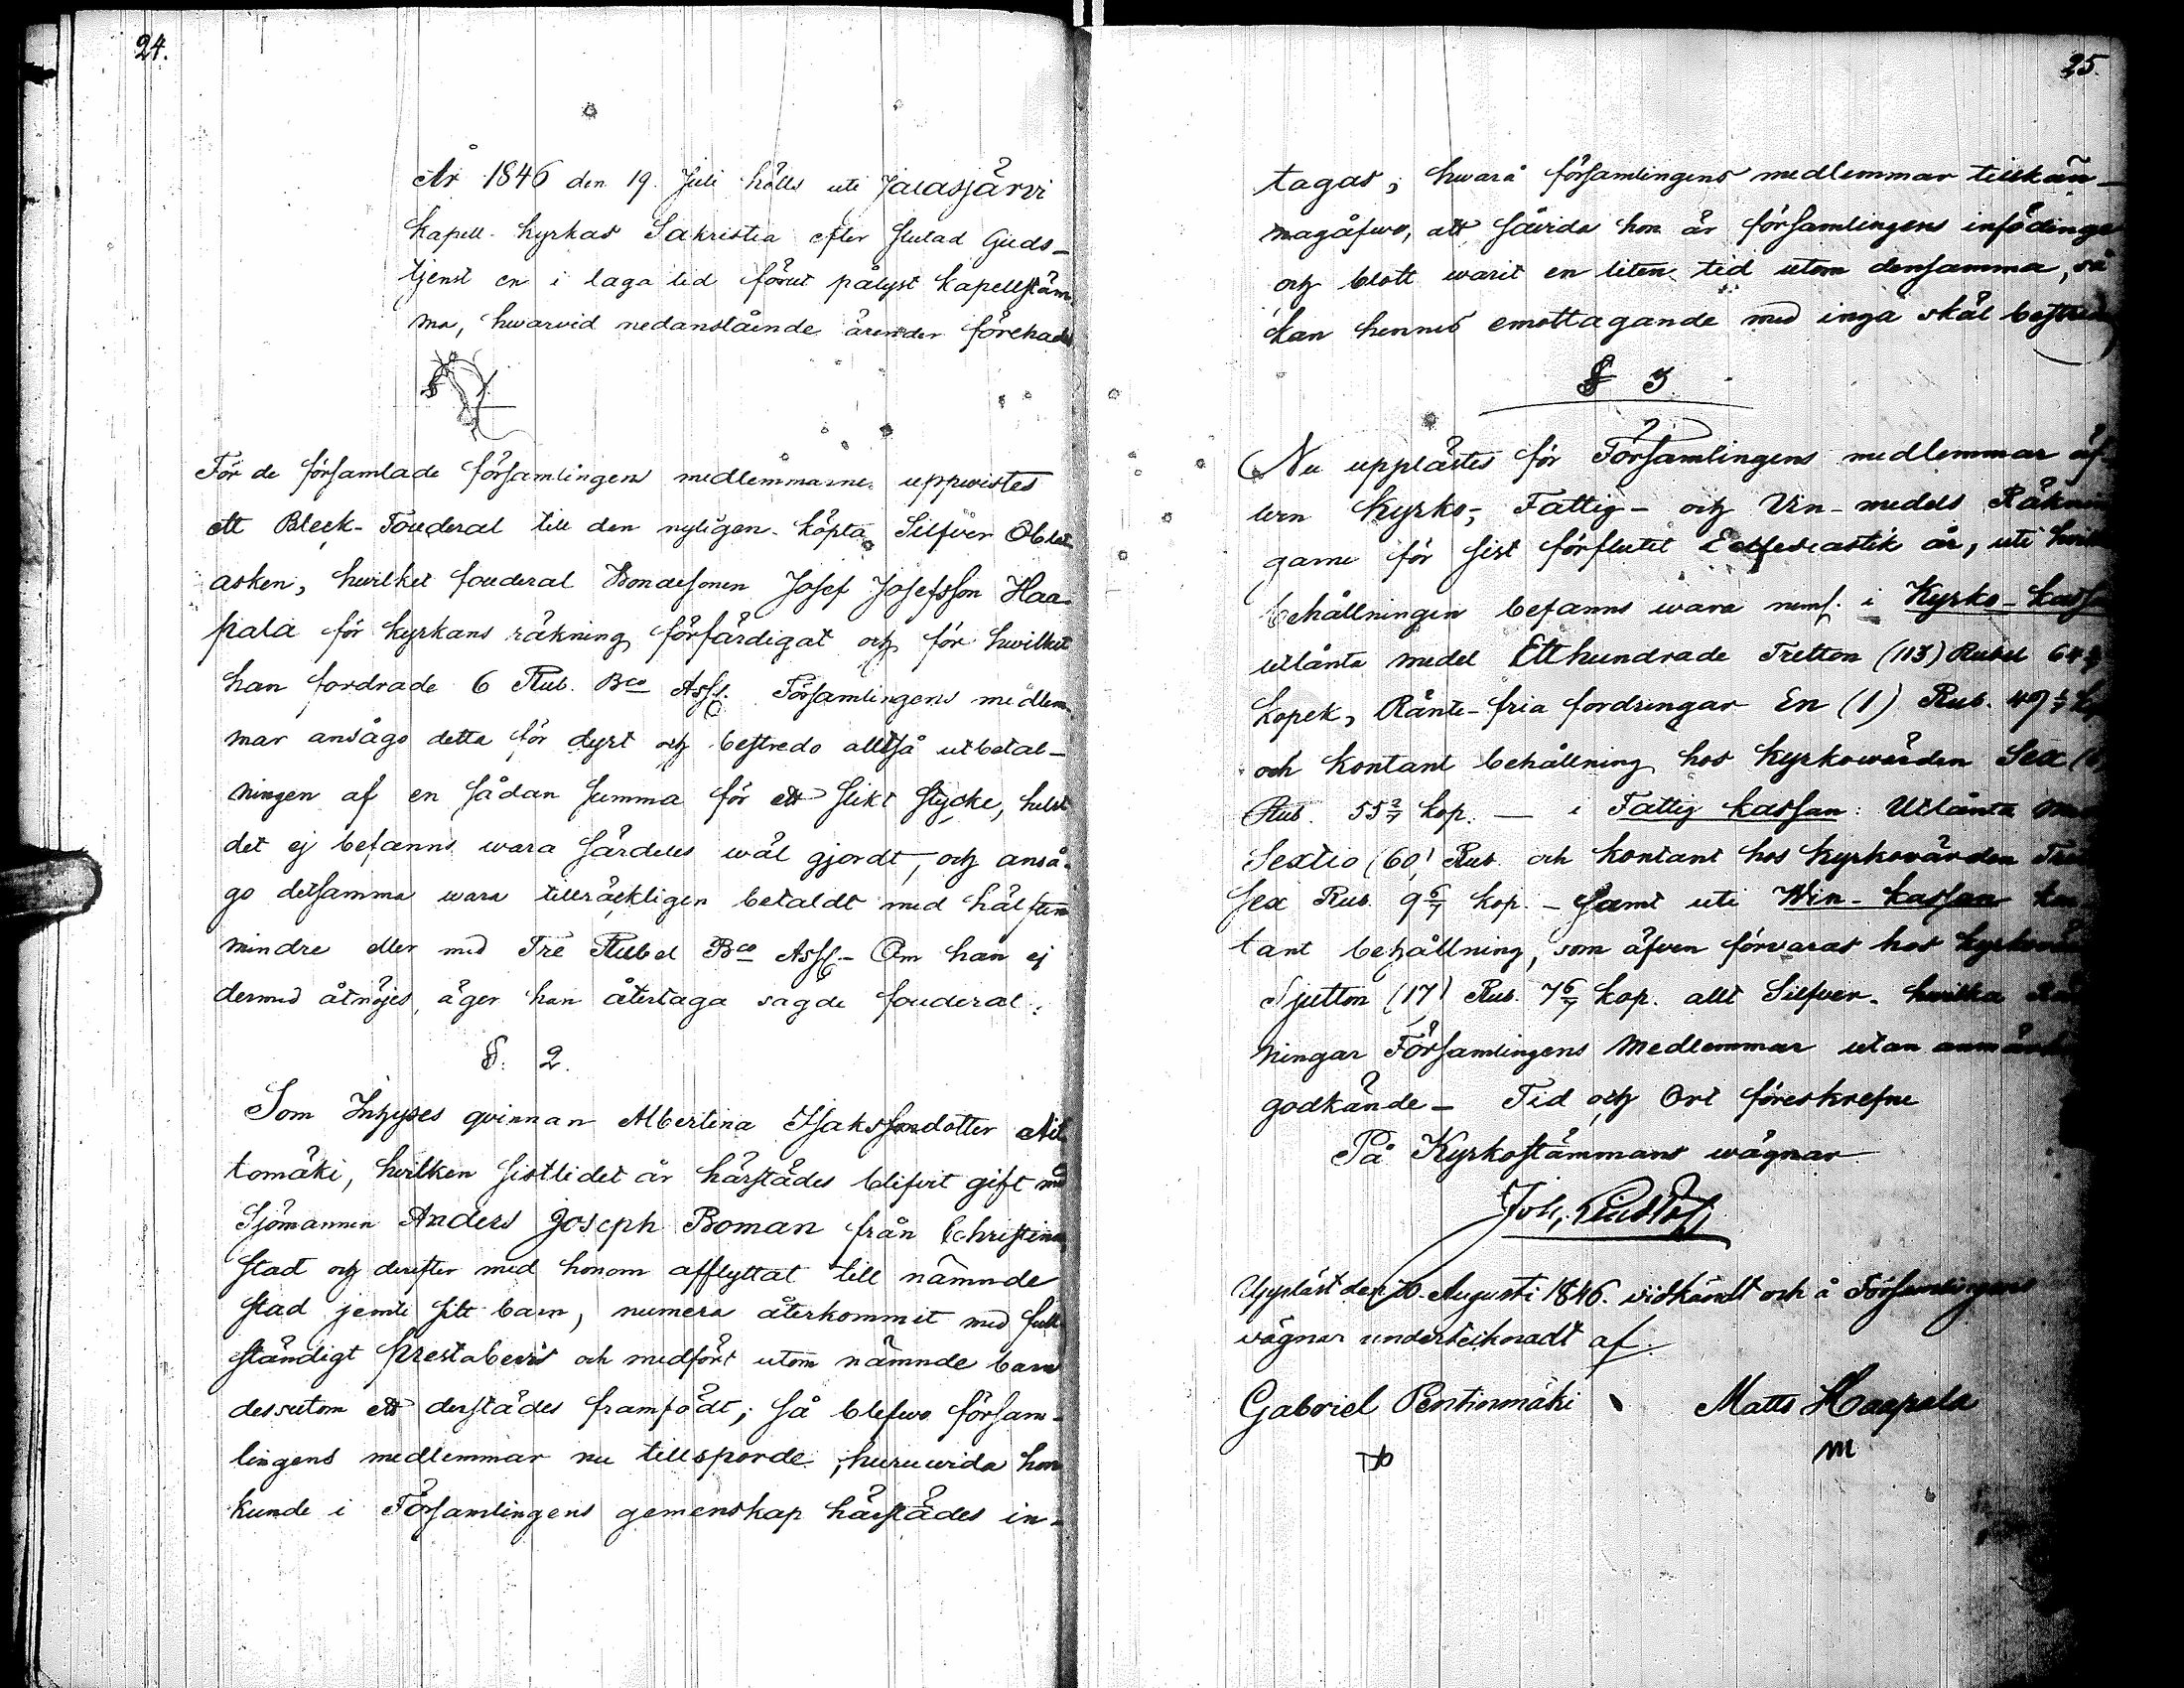 24.
År 1846 den 19. Juli hölls uti Jalasjärvi
Kapell-kyrkas Sakristia efter slutad Guds-
tjenst en i laga tid förut pålyst kapellstäm-
ma, hwarvid nedanstående ärender förehades
§ 1.
För de församlade församlingens medlemmarne uppvistes
ett Bleck-fouderal till den nyligen köpta Silfver Oblat
asken, hwilket fouderal Bondesonen Josef Josefsson Haa-
pala för kyrkans räkning förfärdigat och för hwilket
han fordrade 6 Rub. Bco Assg. Församlingens medlem-
mar ansågo detta för dyrt och bestredo alltså utbetal-
ningen af en sådan summa för ett slikt stycke, helst
det ej befanns wara särdeles wäl gjordt, och anså-
go detsamma wara tillräckligen betaldt med hälften
mindre eller med Tre Rubel Bco Assg. - Om han ej
dermed åtnöjes, äger han återtaga sagde fouderal.
§. 2.
Som Inhyses qvinnan Albertina Isaksdotter
tomäki, hwilken sistlidet år härstädes blifvit gift med
Sjömannen Anders Joseph Boman från Christina
stad och derefter med honom afflyttat till nämnde
stad jemte sitt barn, numera återkommit med full-
ständigt Prestabevis och medfört utom nämnde barn
dessutom ett derstädes framfödt; så blefwo försam-
lingens medlemmar nu tillsporde, huruvida hon
kunde i Församlingens gemenskap härstädes in-
25.
tagas; hwarå församlingens medlemmar tillkän-
nagåfwo, att såvida hon är församlingens infödinge
och blott warit en liten tid utom densamma, så
kan hennes emottagande med inga skäl bestridas
§ 3.
Nu upplästes för Församlingens medlemmar äf-
wen Kyrko-, Fattig- och Vin-medels Räknin
garne för sist förflutit Ecclesiastik år, uti hvilka
behållningen befanns wara neml. i Kyrko-kassan
utlånta medel Etthundrade Tretton (113) Rubel 64
kopek, Ränte-fria fordringar En (1) Rub. 49
och kontant behållning hos kyrkowärden Sex (6)
Rub. 55 2/7 kop. — i Fattig kassan: Utlånta
Sextio (60) Rub. och kontant hos kyrkovärden
sex Rub. 9 6/7 kop. - samt uti Win-kassan kon-
tant behållning, som äfven förvaras hos kyrkovärden
Sjutton (17) Rub. 7 6/7 kop. allt Silfver. hwilka Räk-
ningar Församlingens Medlemmar utan anmärkn
godkände - Tid och Ort föreskrefne
På Kyrkostämmans wägnar
Joh.
Uppläst den 10. Augusti 1846. vidkändt och å Församlingens
vägnar undertecknadt af.
Gabriel Pentinmäki Matts Haapala
m